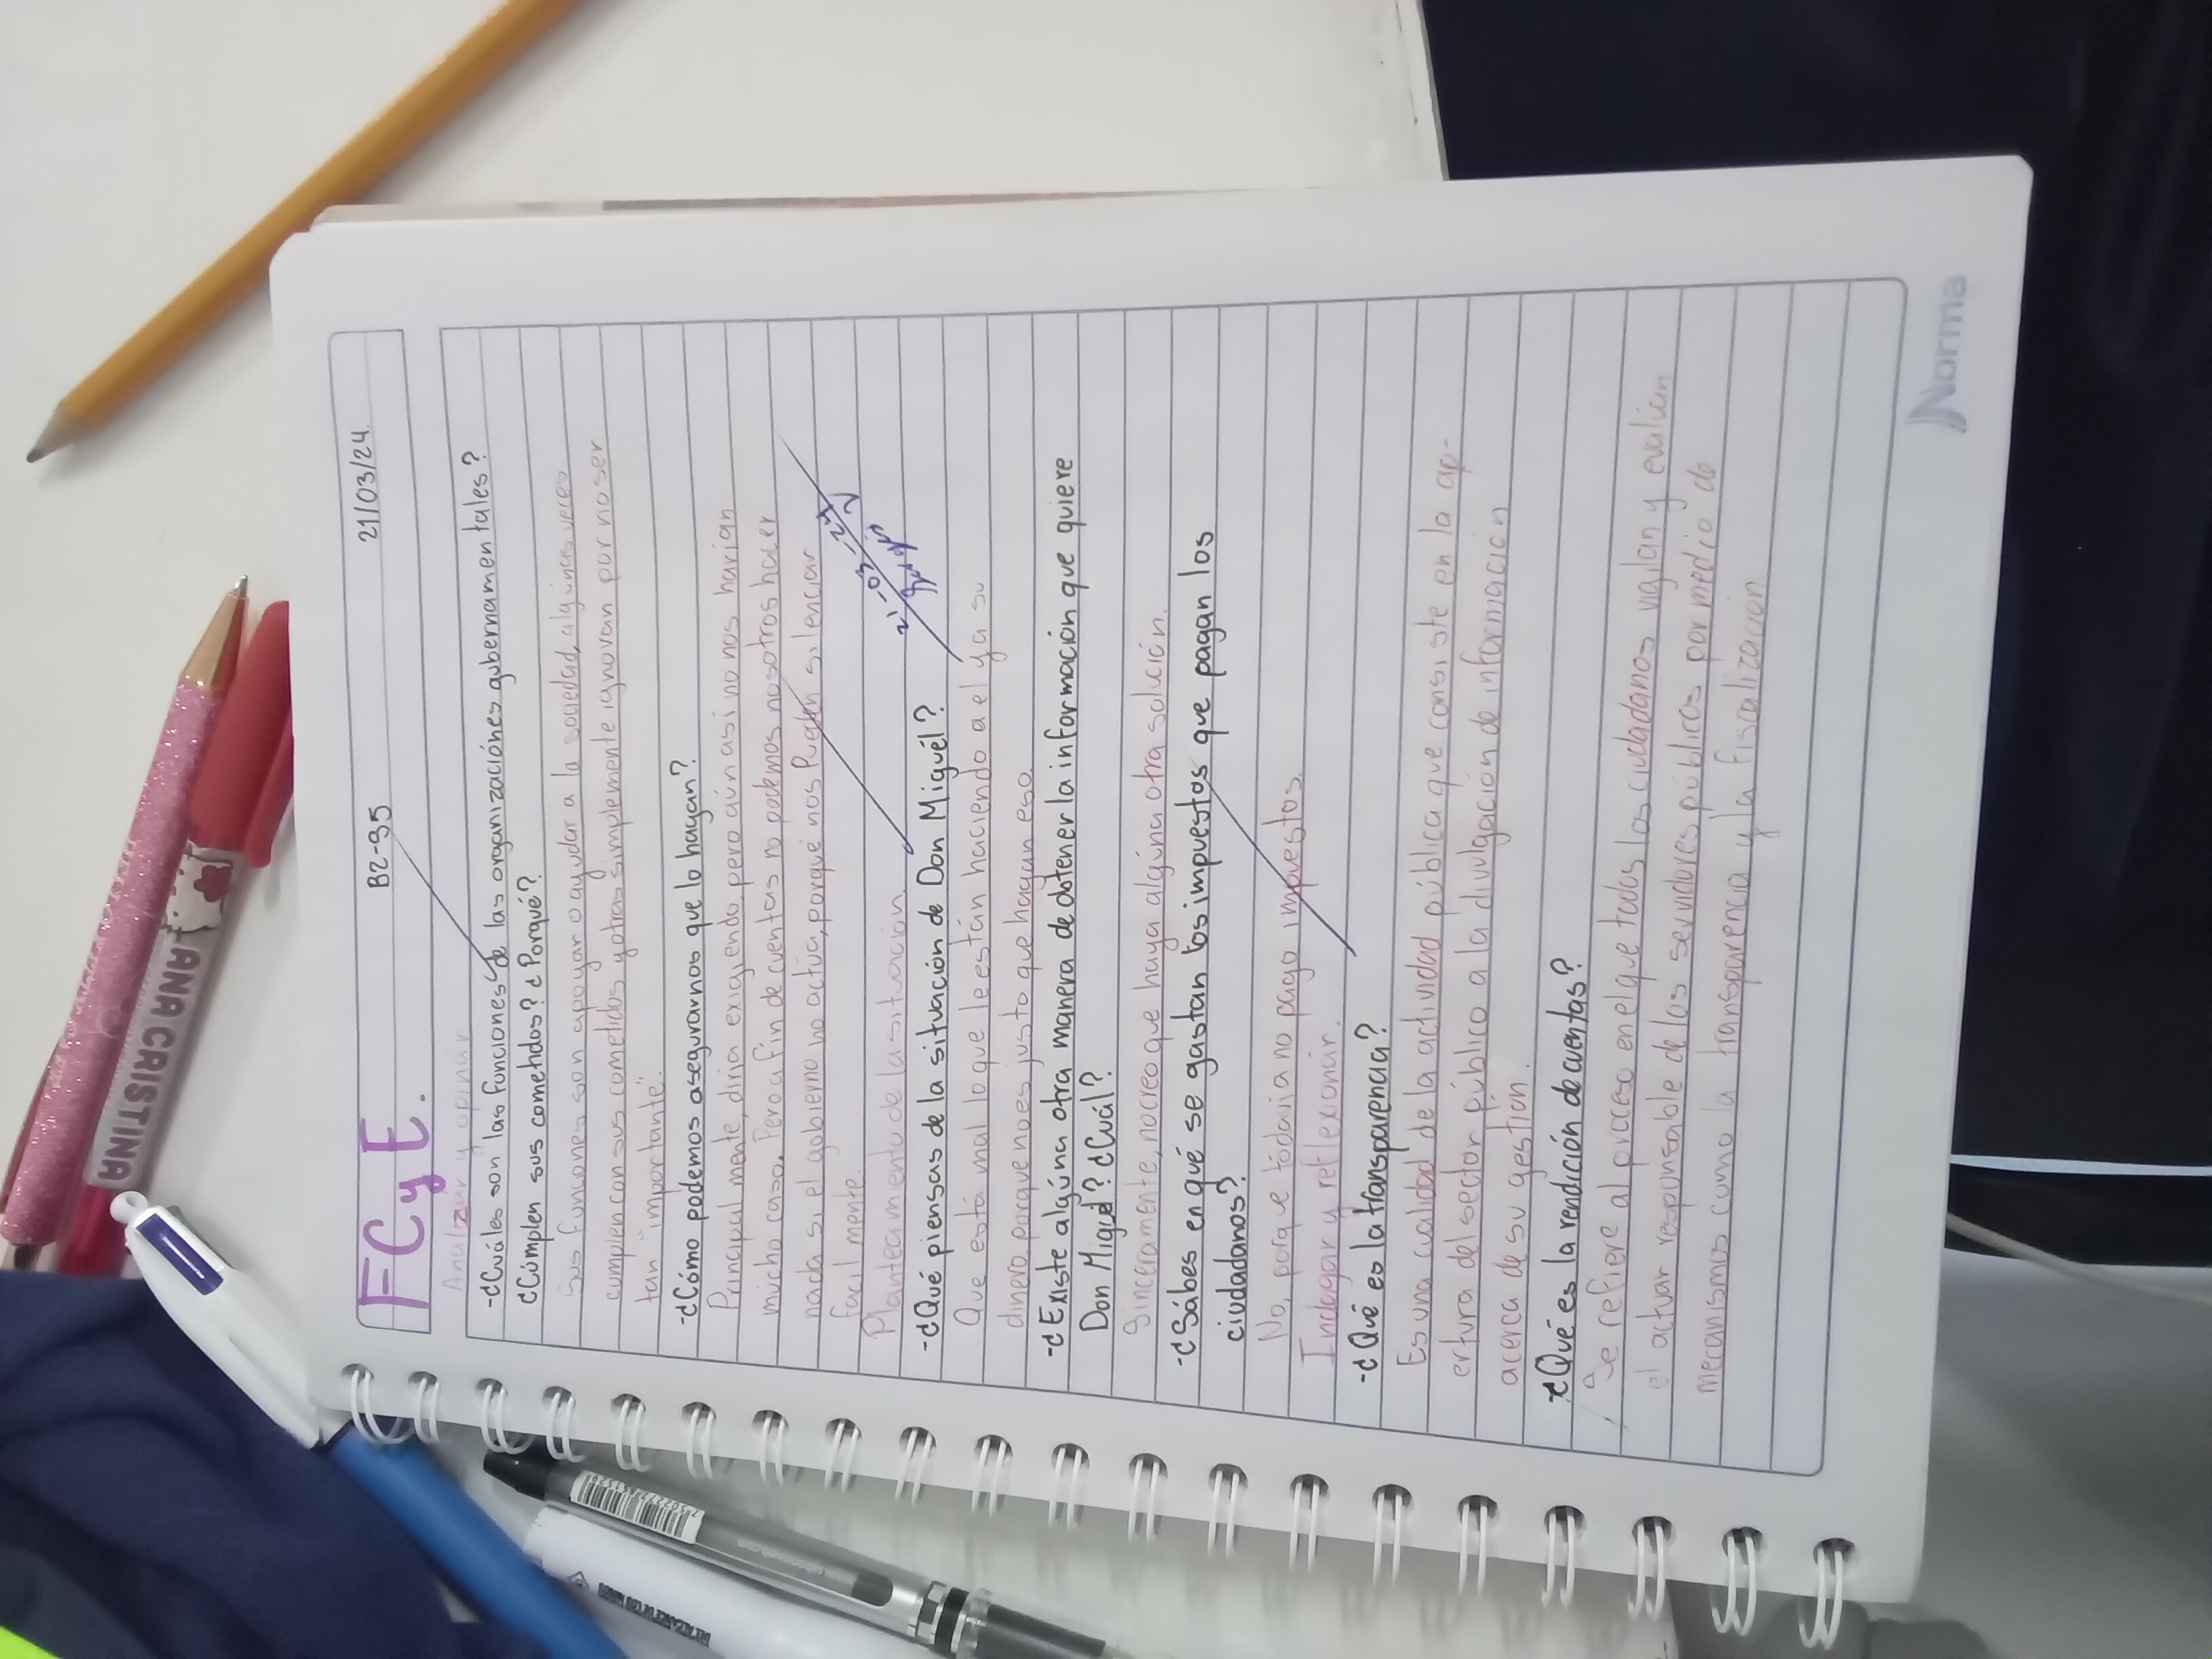 FCyE.
B2-35
21/03/24.
Analizar y opinar
-¿Cuáles son las funciones de las organizaciónes gubernamentales?
¿Cúmplen sus cometidos? ¿Porqué?
Sus funciones son apoyar o ayudar a la sociedad, algúnas veces
cumplen con sus cometidos y otras simplemente ignoran por no ser
tan "importante".
-¿Cómo podemos asegurarnos que lo hagan?
Principalmente, diria exigiendo, pero aún asi no nos harian
mucho caso. Pero a fin de cuentas no podemos nosotros hacer
nada si el gobierno no actúa, porqué nos Pueden silenciar
facil mente.
Planteamiento de la situación.
-¿Qué piensas de la situación de Don Miguél?
Que está mal lo que le están haciendo a el y a su
dinero, porque no es justo que hagan eso.
-¿Existe algúna otra manera de obtener la información que quiere
Don Miguel? ¿Cuál?
Sinceramente, no creo que haya algúna otra solución.
-¿Sábes en qué se gastan los impuestos que pagan los
ciudadanos?
No, porque tódavia no pago impuestos.
Indagar y reflexionar.
-¿Qué es la transparencia?
Es una cualidad de la actividad pública que consiste en la ap-
ertura del sector público a la divulgación de información
acerca de su gestión.
-¿Qué es la rendición de cuentas?
Se refiere al proceso en el que todos los ciudadanos vigilan y evalúan
el actuar responsable de los servidores públicos por medio de
mecanismos como la transparencia y la fiscalización
21-03-24
Norma
ANA CRISTINA